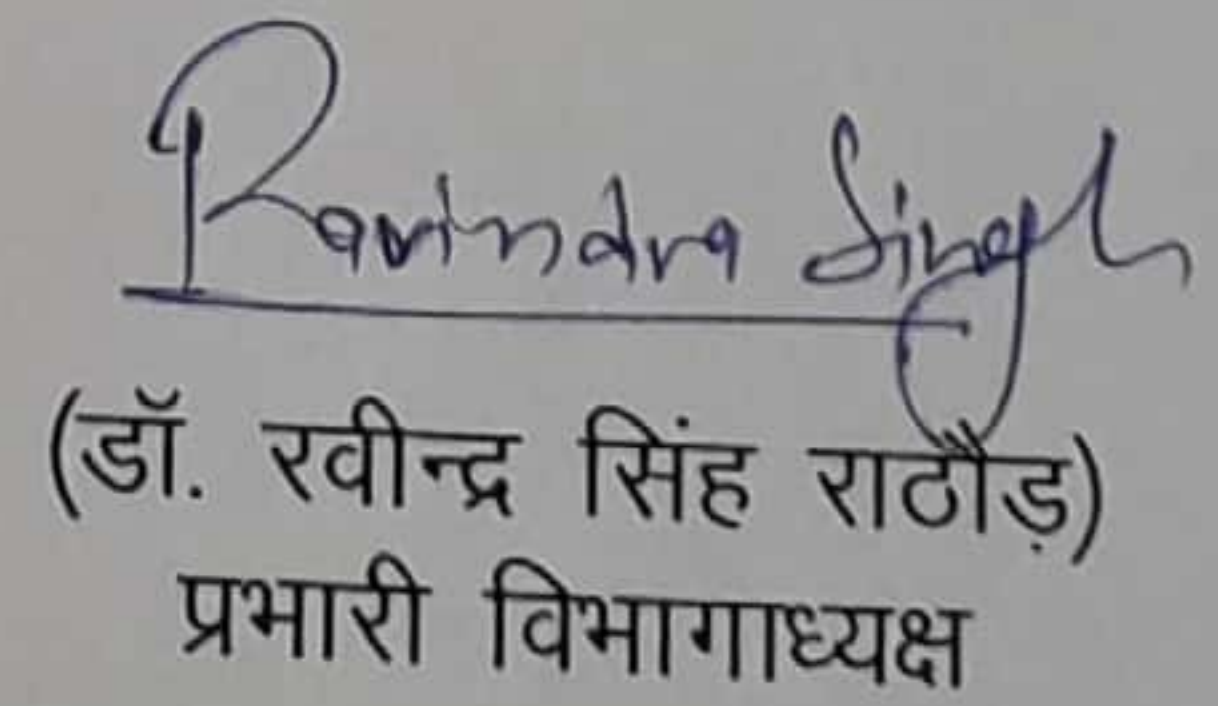 Ravindra Singh
(डॉ. रवीन्द्र सिंह राठौड़)
प्रभारी विभागाध्यक्ष